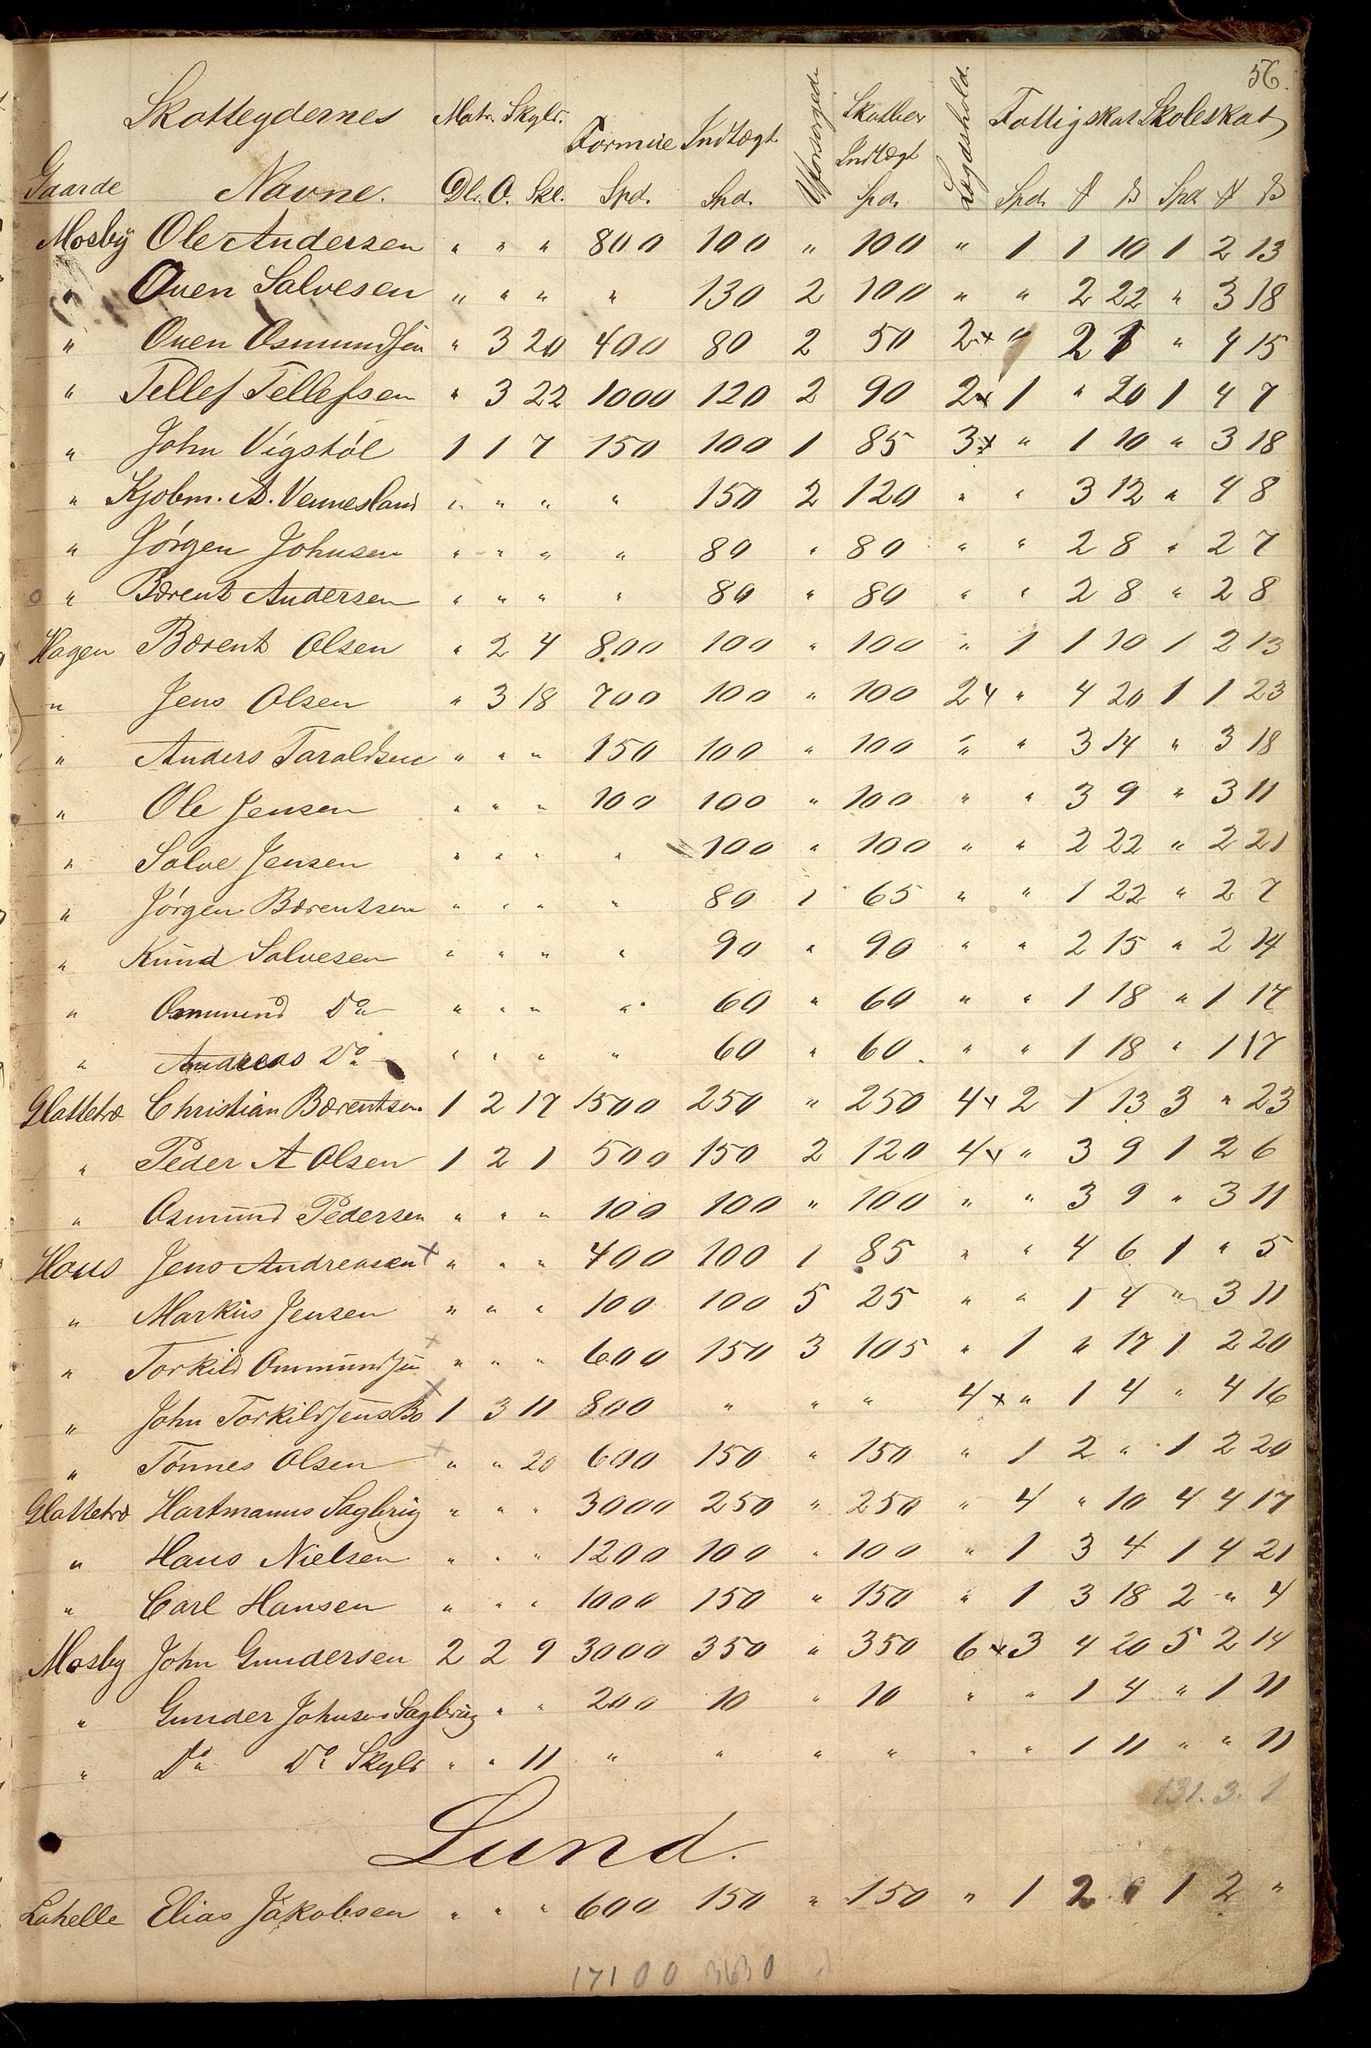 56.
Gaarde Skatteydernes Navne. Matr. Skyld. Dl. O. Skl. Formue Spd. Indtægt Spd. Uforsørgede Skatbar Indtægt Spd. Lægdshold. Fattigskat Spd. # ß Skoleskat Spd # ß
Mosby Ole Andersen " " " 800 100 " 100 " 1 1 10 1 2 13
" Ouen Salvesen " " " " 130 2 100 " " 2 22 " 3 18
" Ouen Osmundsen " 3 20 400 80 2 50 2x " 2 1 " 4 15
" Tellef Tellefsen " 3 22 1000 120 2 90 2x 1 " 20 1 4 7
" John Vigstøl 1 1 7 150 100 1 85 3x " 1 10 " 3 18
" Kjøbm. A. Vennesland " " " " 150 2 120 " " 3 12 " 4 8
" Jørgen Johnsen " " " " 80 " 80 " " 2 8 " 2 7
" Bærent Andersen " " " " 80 " 80 " " 2 8 " 2 8
Hagen Bærent Olsen " 2 4 800 100 " 100 " 1 1 10 1 2 13
" Jens Olsen " 3 18 700 100 " 100 2x " 4 20 1 1 23
" Anders Taraldsen " " " 150 100 " 100 " " 3 14 " 3 18
" Ole Jensen " " " 100 100 " 100 " " 3 9 " 3 11
" Salve Jensen " " " " 100 " 100 " " 2 22 " 2 21
" Jørgen Bærentsen " " " " 80 1 65 " " 1 22 " 2 7
" Knud Salvesen " " " " 90 " 90 " " 2 15 " 2 14
" Osmund Do " " " " 60 " 60 " " 1 18 " 1 17
" Andreas Do " " " " 60 " 60 " " 1 18 " 1 17
Glattetræ Christian Bærentsen 1 2 17 1500 250 " 250 4x 2 1 13 3 " 23
" Peder A Olsen 1 2 1 500 150 2 120 4x " 3 9 1 2 6
" Osmund Pedersen " " " 100 100 " 100 " " 3 9 " 3 11
Haus Jens Andreasen x " " " 400 100 1 85 " " 4 6 1 " 5
" Markus Jensen " " " 100 100 5 25 " " 1 4 " 3 11
" Torkild Ommundsen x " " " 600 150 3 105 " 1 " 17 1 2 20
" John Torkildsens Bo x 1 3 11 800 " " " 4x " 1 4 " 4 16
" Tønnes Olsen x " " 20 600 150 " 150 " 1 2 " 1 2 20
Glattetræ Hartmanns Sagbrug " " " 3000 250 " 250 " 4 " 10 4 4 17
" Hans Nielsen " " " 1200 100 " 100 " 1 3 4 1 4 21
" Carl Hansen " " " 1000 150 " 150 " 1 3 18 2 " 4
Mosby John Gundersen 2 2 9 3000 350 " 350 6x 3 4 20 5 2 14
" Gunder Johnsens Sagbrug " " 200 10 " 10 " " 1 4 " 1 11
" Do Do Skyld " " 11 " " " " " " 1 11 " " 11
131. 3. 1
Lund.
Lahelle Elias Jakobsen " " " 600 150 " 150 " 1 2 " 1 2 "
17100 3630